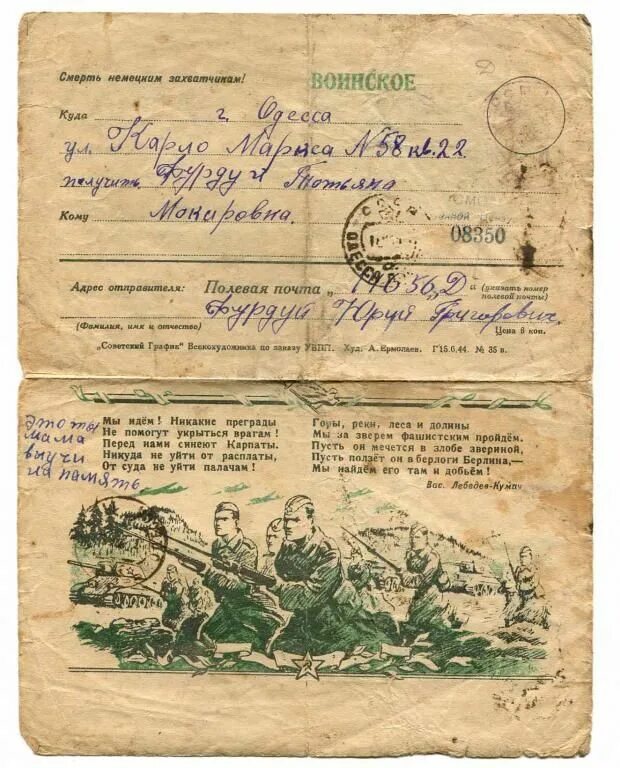 Смерть немецким захватчикам!
ВОИНСКОЕ
Куда г. Одесса
ул. Карло Маркса N 58 кв. 22
получить Фурдуй Тотьяна
Кому Мокаровна.
08350
Адрес отправителя: Полевая почта „ 56 „Д" а (указать номер полевой почты)
Фурдуй Юрий Григорович.
(Фамилия, имя и отчество)
Цена 6 коп.
„Советский График" Всекохудожника по заказу УВПП. Худ. А. Ермолаев. Г15.6.44. № 35 в.
это ты
мама
выучи
на память
Мы идём! Никакие преграды
Не помогут укрыться врагам!
Перед нами синеют Карпаты.
Никуда не уйти от расплаты,
От суда не уйти палачам!
Горы, реки, леса и долины
Мы за зверем фашистским пройдём.
Пусть он мечется в злобе звериной,
Пусть ползёт он в берлоги Берлина,—
Мы найдём его там и добьём!
Вас. Лебедев-Кумач